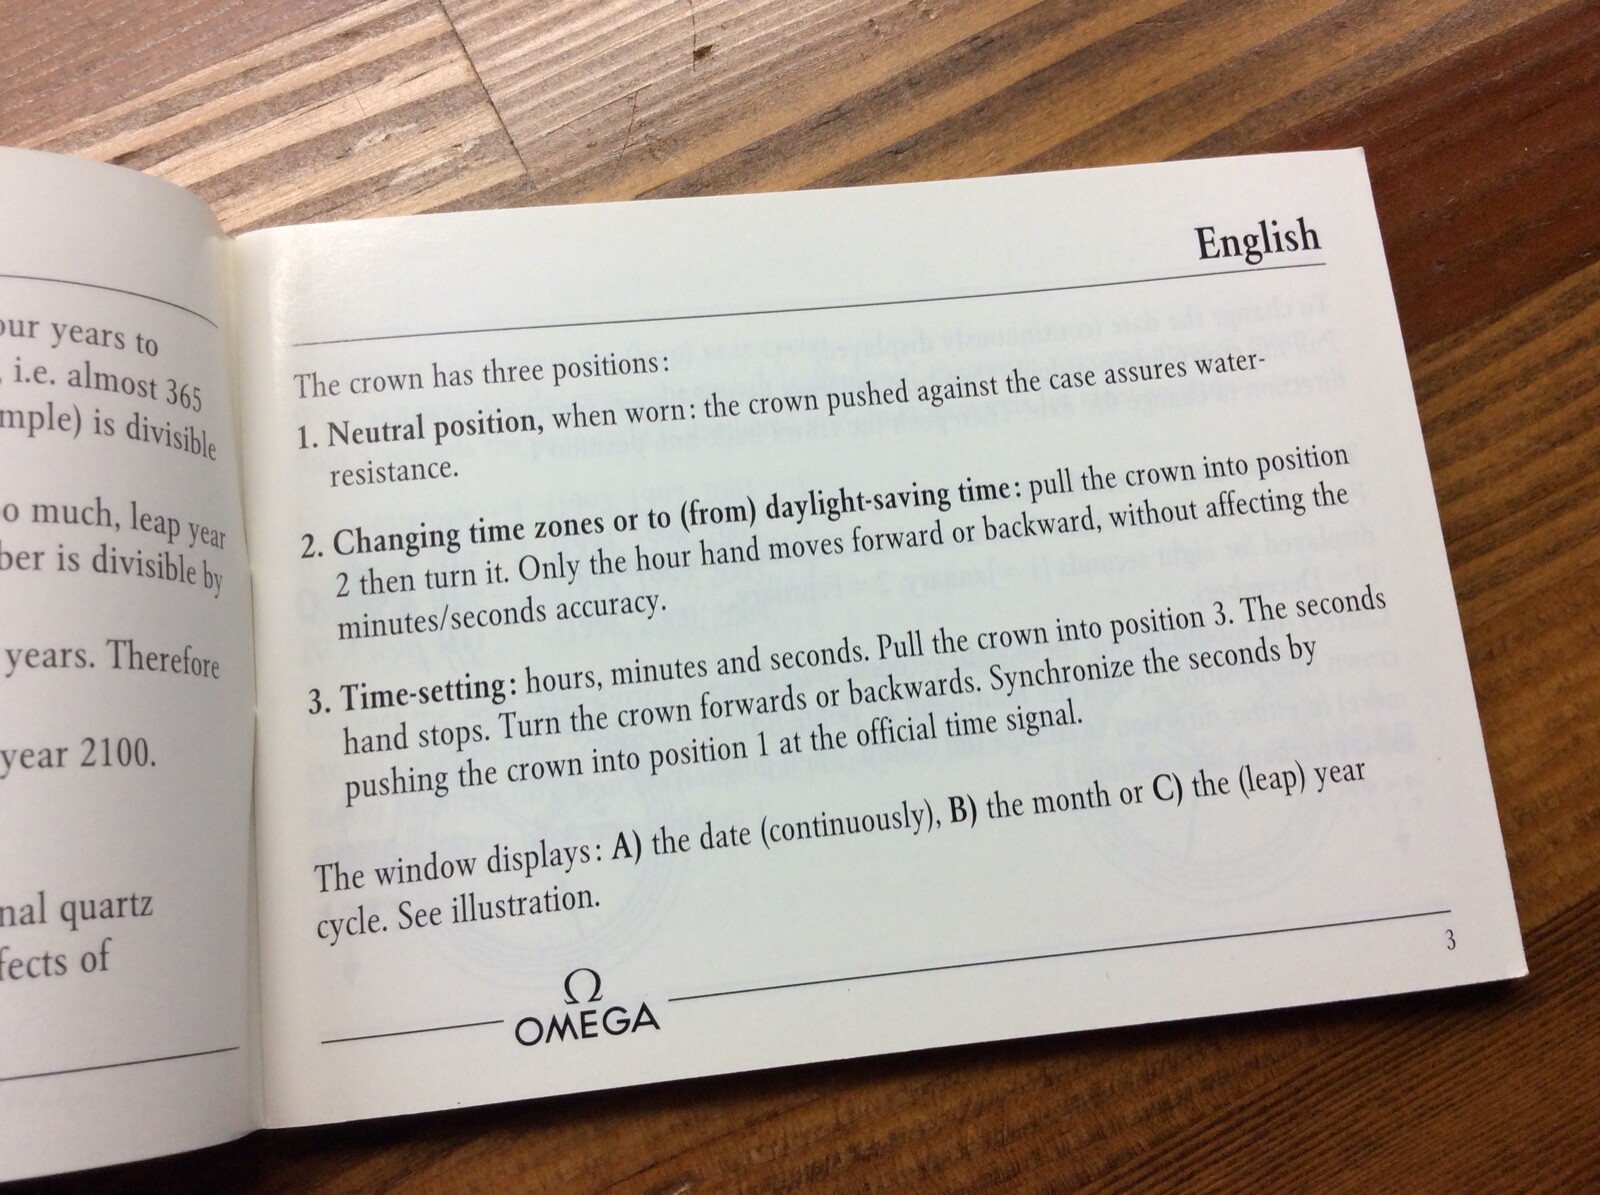 our years to
, i.e. almost 365
is divisible
o much, leap year
is divisible by
years. Therefore
year 2100.
quartz
of
English
The crown has three positions:
1. Neutral position, when worn: the crown pushed against the case assures water-
resistance.
2. Changing time zones or to (from) daylight-saving time: pull the crown into position
2 then turn it. Only the hour hand moves forward or backward, without affecting the
minutes/seconds accuracy.
3. Time-setting: hours, minutes and seconds. Pull the crown into position 3. The seconds
hand stops. Turn the crown forwards or backwards. Synchronize the seconds by
pushing the crown into position 1 at the official time signal.
The window displays: A) the date (continuously), B) the month or C) the (leap) year
cycle. See illustration.
Ω
OMEGA
3